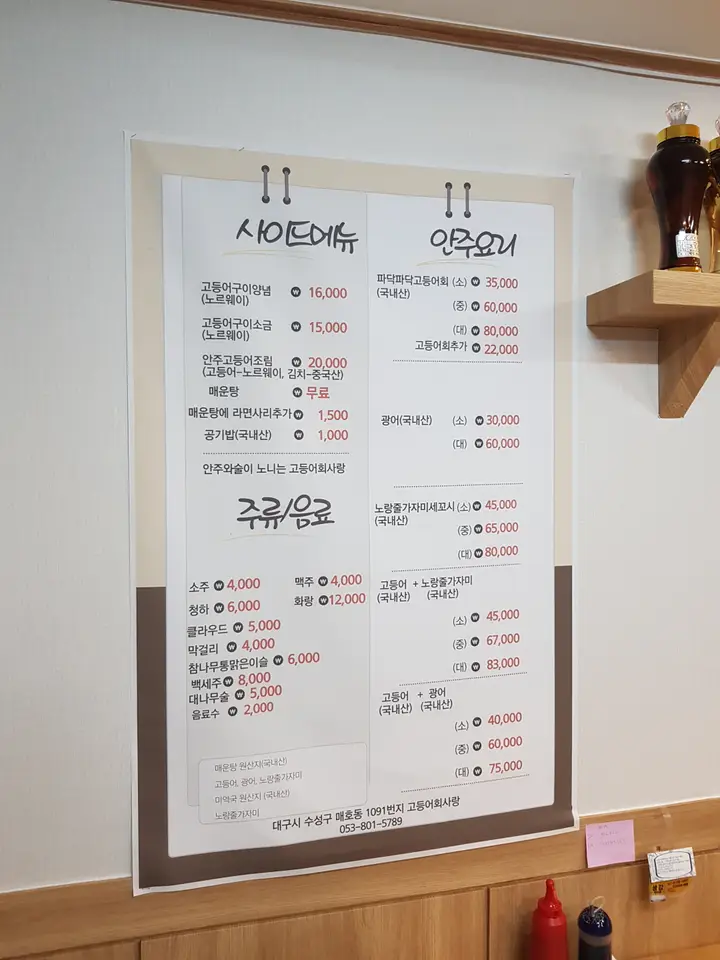 사이드메뉴
고등어구이양념 ₩ 16,000
(노르웨이)
고등어구이소금 ₩ 15,000
(노르웨이)
안주고등어조림 ₩ 20,000
(고등어-노르웨이, 김치-중국산)
매운탕 ₩ 무료
매운탕에 라면사리추가 ₩ 1,500
공기밥(국내산) ₩ 1,000
안주와술이 노니는 고등어회사랑
주류/음료
소주 ₩ 4,000 맥주 ₩ 4,000
청하 ₩ 6,000 화랑 ₩ 12,000
클라우드 ₩ 5,000
막걸리 ₩ 4,000
참나무통맑은이슬 ₩ 6,000
백세주 ₩ 8,000
대나무술 ₩ 5,000
음료수 ₩ 2,000
매운탕 원산지(국내산)
고등어, 광어, 노랑줄가자미
미역국 원산지 (국내산)
노랑줄가자미
안주요리
파닥파닥고등어회 (소) ₩ 35,000
(국내산)
(중) ₩ 60,000
(대) ₩ 80,000
고등어회추가 ₩ 22,000
광어(국내산) (소) ₩ 30,000
(대) ₩ 60,000
노랑줄가자미세꼬시 (소) ₩ 45,000
(국내산)
(중) ₩ 65,000
(대) ₩ 80,000
고등어 + 노랑줄가자미
(국내산) (국내산)
(소) ₩ 45,000
(중) ₩ 67,000
(대) ₩ 83,000
고등어 + 광어
(국내산) (국내산)
(소) ₩ 40,000
(중) ₩ 60,000
(대) ₩ 75,000
대구시 수성구 매호동 1091번지 고등어회사랑
053-801-5789